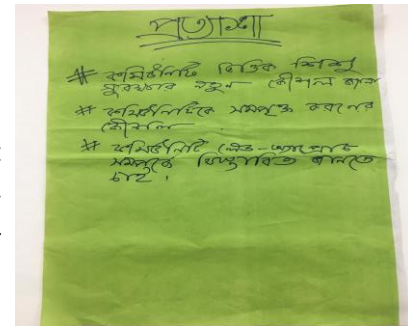 প্রত্যাশা
# কমিউনিটি ভিত্তিক শিশু
সুরক্ষার নতুন কৌশল জানা
# কমিউনিটিকে সম্পৃক্ত করণের
কৌশল
# কমিউনিটি লেড-এপ্রোচ
সম্পর্কে বিস্তারিত জানতে
চাই।